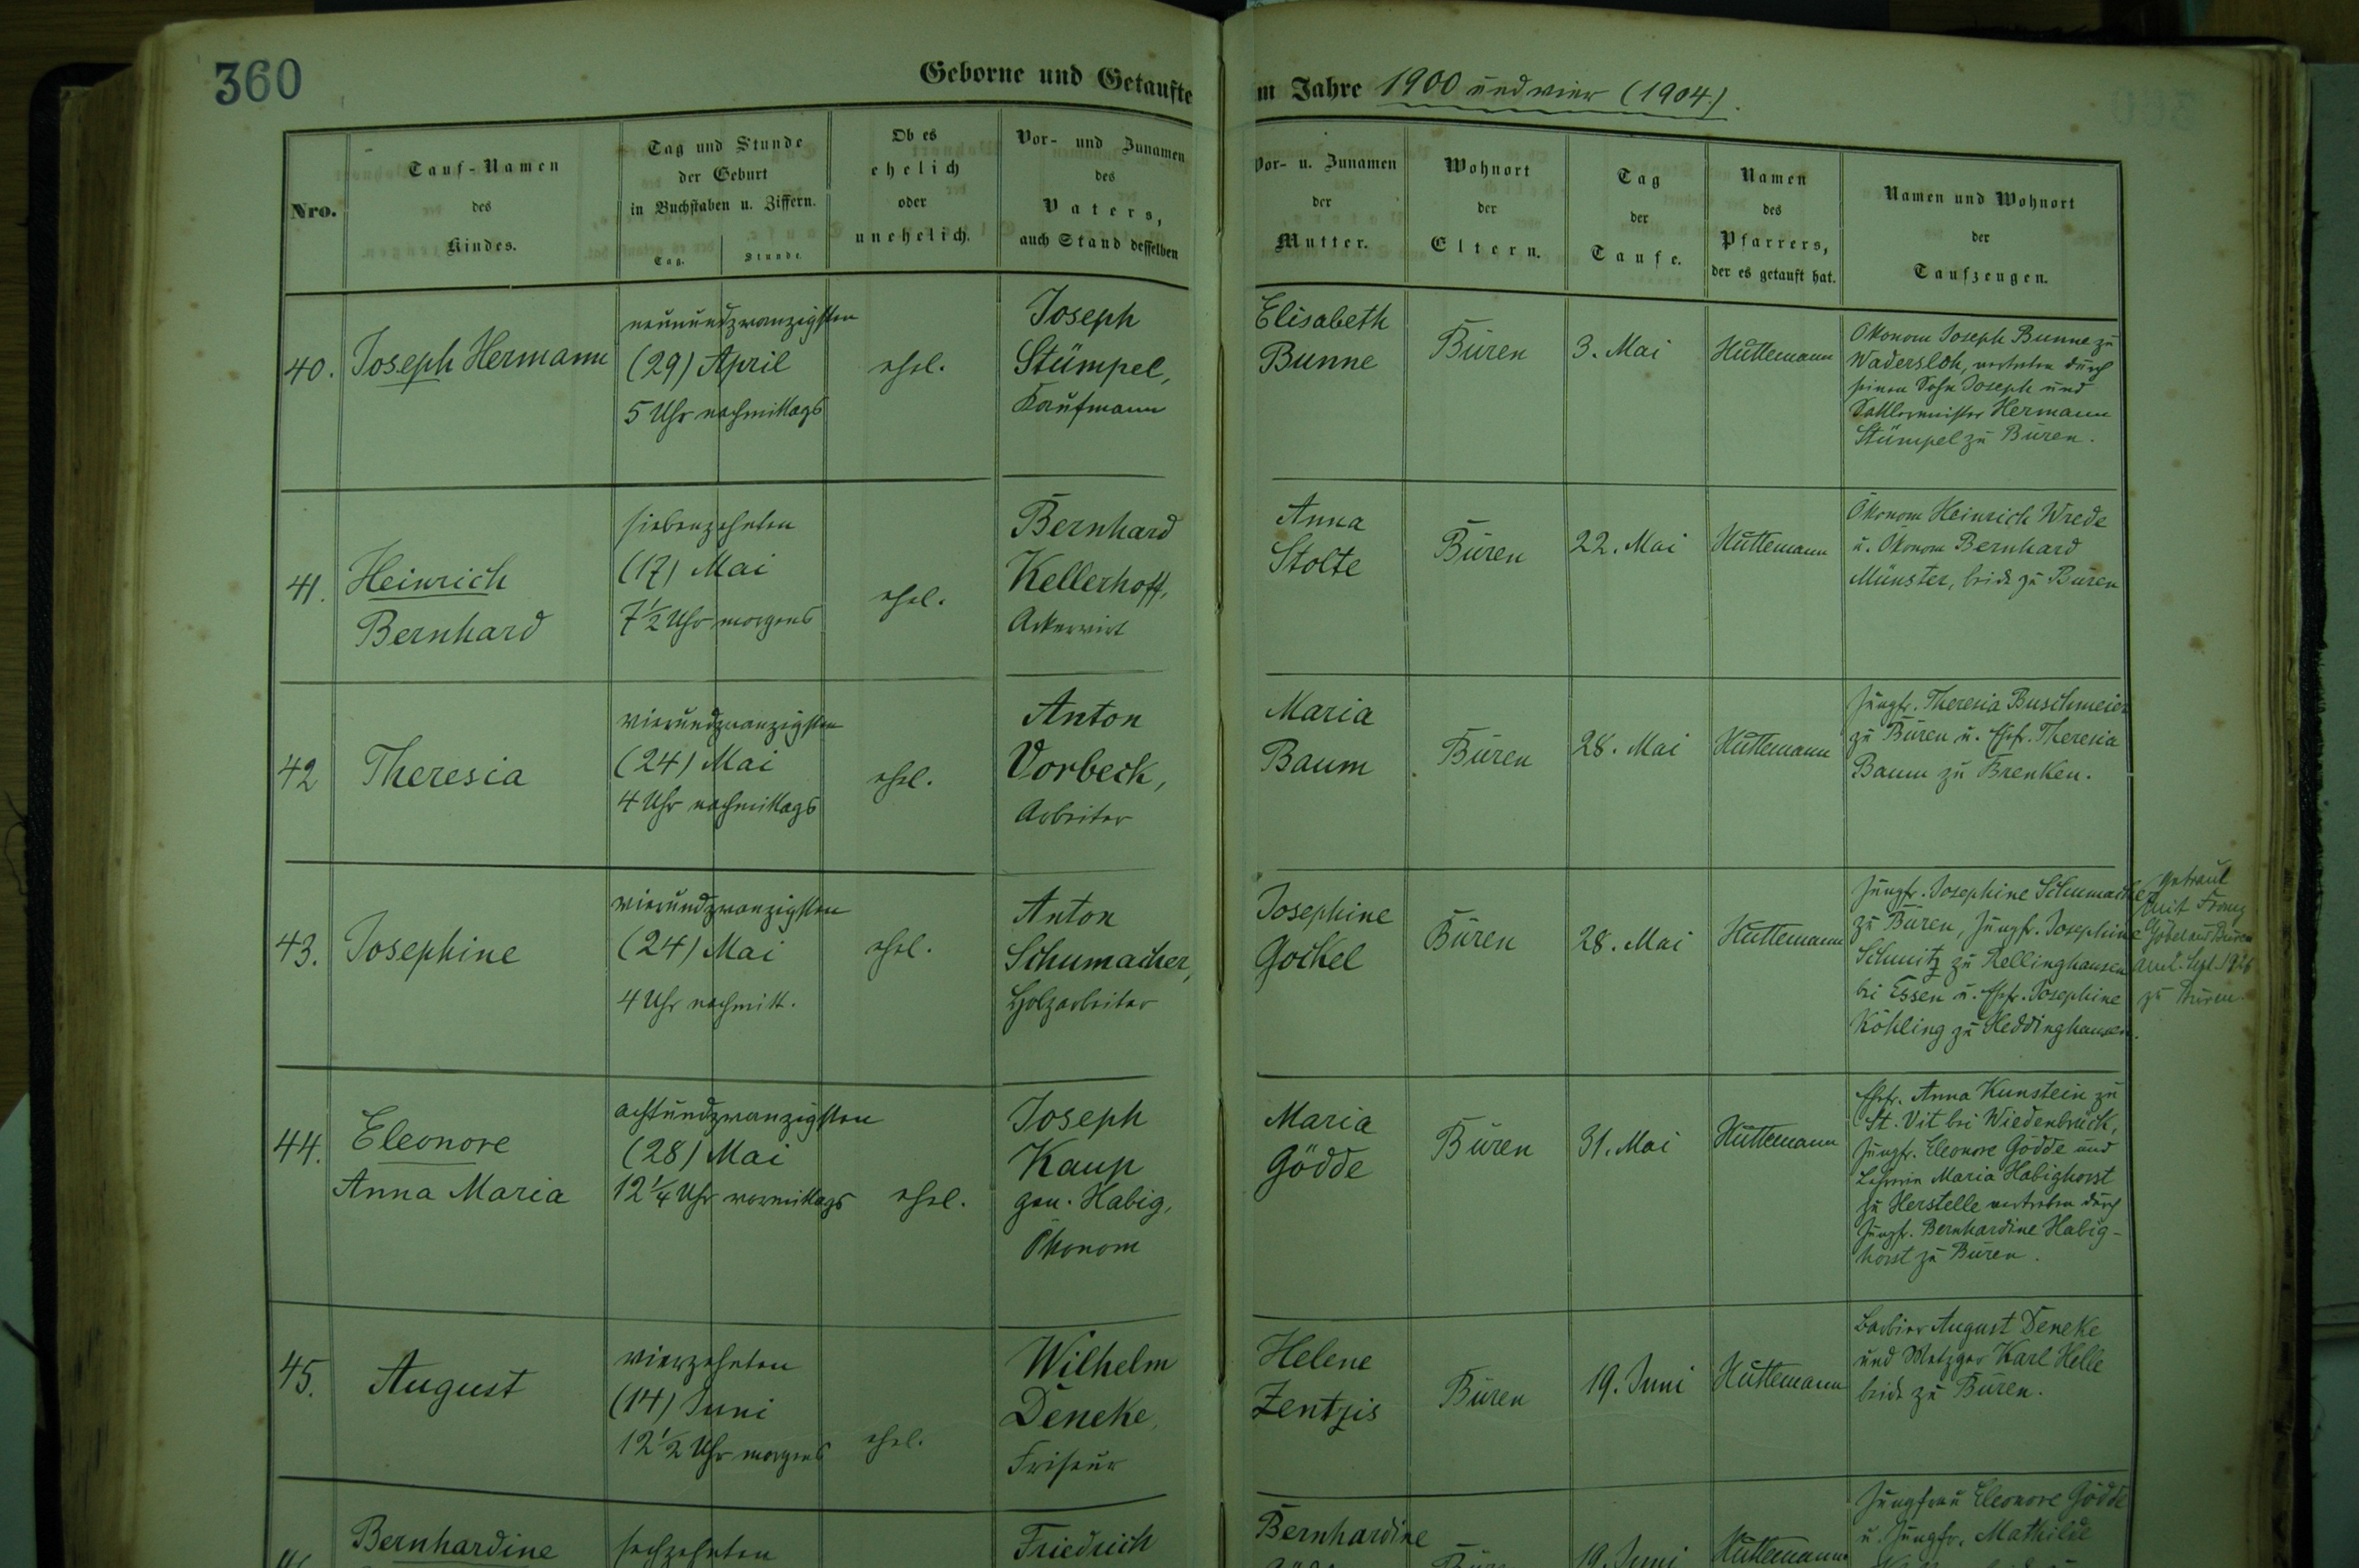 360
Geborne und Getaufte
m Jahre 1900 und vier (1904).
Nro.
Tauf-Namen
des
Kindes.
Tag und Stunde
der Geburt
in Buchstaben u. Ziffern.
Tag.
Stunde.
Ob es
ehelich
oder
unehelich.
Vor- und Zunamen
des
Vaters,
auch Stand desselben
Vor- u. Zunamen
der
Mutter.
Wohnort
der
Eltern.
Tag
der
Taufe.
Namen
des
Pfarrers,
der es getauft hat.
Namen und Wohnort
der
Taufzeugen.
40.
Joseph Hermann
neunundzwanzigsten
(29) April
5 Uhr nachmittags
ehel.
Joseph
Stümpel,
Kaufmann
Elisabeth
Bunne
Büren
3. Mai
Hüttemann
Ökonom Joseph Bunne zu
Wadersloh, vertreten durch
seinen Sohn Joseph und
Sattlermeister Hermann
Stümpel zu Büren.
41.
Heinrich
Bernhard
siebenzehnten
(17) Mai
7 1/2 Uhr morgens
ehel.
Bernhard
Kellerhoff,
Ackerwirt
Anna
Stolte
Büren
22. Mai
Hüttemann
Ökonom Heinrich Wrede
u. Ökonom Bernhard
Münster, beide zu Büren
42
Theresia
vierundzwanzigsten
(24) Mai
4 Uhr nachmittags
ehel.
Anton
Vorbeck,
Arbeiter
Maria
Baum
Büren
28. Mai
Hüttemann
Jungfr. Theresia Buschmeier
zu Büren u. Ehefr. Theresia
Baum zu Brenken.
43.
Josephine
vierundzwanzigsten
(24) Mai
4 Uhr nachmitt.
ehel.
Anton
Schumacher,
Holzarbeiter
Josephine
Gockel
Büren
28. Mai
Hüttemann
Jungfr. Josephine Schumacher
zu Büren, Jungfr. Josephine
Schmitz zu Rellinghausen
bei Essen u. Ehefr. Josephine
Köhling zu Heddinghausen.
Getraut
mit Franz
Göbel aus Büren
Sept.
zu Büren.
44.
Eleonore
Anna Maria
achtundzwanzigsten
(28) Mai
12 1/4 Uhr vormittags
ehel.
Joseph
Kaup
gen. Habig,
Ökonom
Maria
Gödde
Büren
31. Mai
Hüttemann
Ehefr. Anna Kunstein zu
St. Vit bei Wiedenbrück,
Jungfr. Eleonore Gödde und
Lehrerin Maria Habighorst
zu Herstelle vertreten durch
Jungfr. Bernhardine Habig-
horst zu Büren.
45.
August
vierzehnten
(14) Juni
12 1/2 Uhr morgens
ehel.
Wilhelm
Deneke,
Friseur
Helene
Zentzis
Büren
19. Juni
Hüttemann
Barbier August Deneke
und Metzger Karl Helle
beide zu Büren.
Bernhardine
sechzehnten
Friedrich
Bernhardine
19. Juni
Hüttemann
Jungfrau Eleonore Gödde
u. Jungfr. Mathilde